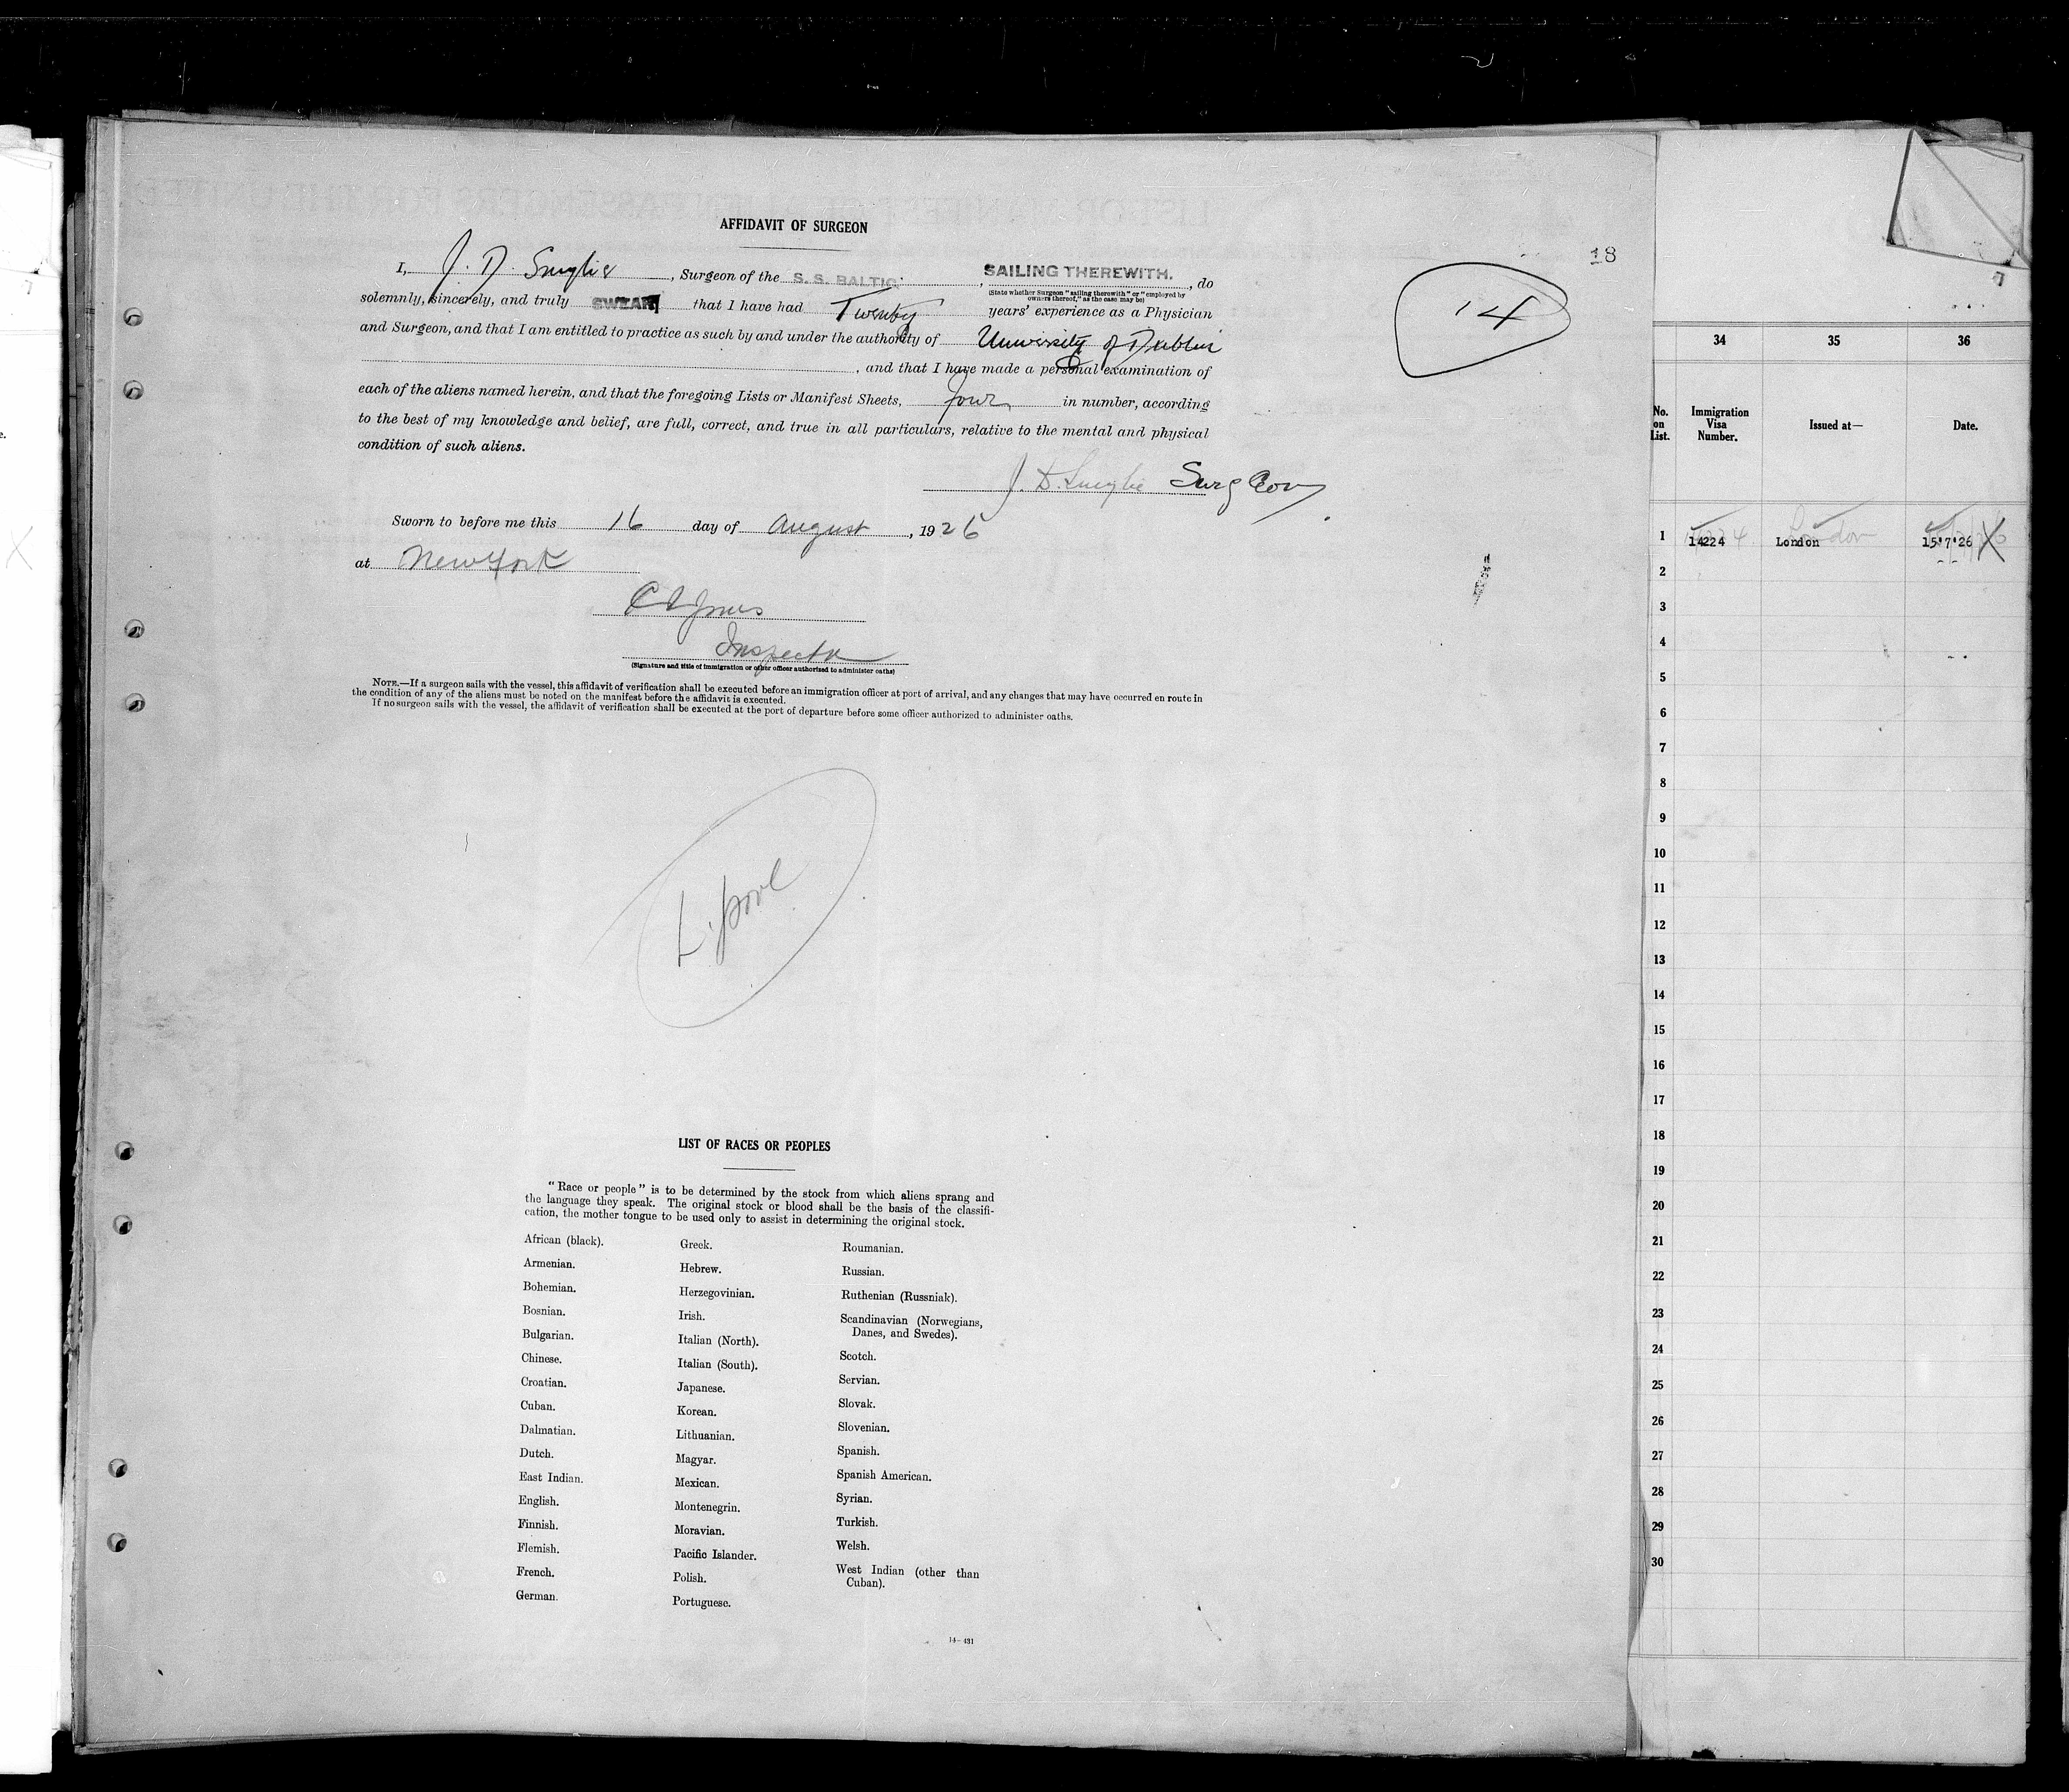 AFFIDAVIT OF SURGEON
18
14
I, J. D. Smylie, Surgeon of the S. S. BALTIC, SAILING THEREWITH., do
(State whether Surgeon "sailing therewith" or "employed by owners thereof," as the case may be)
solemnly, sincerely, and truly SWEAR that I have had Twenty years' experience as a Physician
and Surgeon, and that I am entitled to practice as such by and under the authority of University of Dublin
, and that I have made a personal examination of
each of the aliens named herein, and that the foregoing Lists or Manifest Sheets, four in number, according
to the best of my knowledge and belief, are full, correct, and true in all particulars, relative to the mental and physical
condition of such aliens.
J. D. Smylie Surgeon
Sworn to before me this 16 day of August, 1926
at New York
Jones
Inspector
(Signature and title of immigration or other officer authorized to administer oaths)
NOTE.—If a surgeon sails with the vessel, this affidavit of verification shall be executed before an immigration officer at port of arrival, and any changes that may have occurred en route in
the condition of any of the aliens must be noted on the manifest before the affidavit is executed.
If no surgeon sails with the vessel, the affidavit of verification shall be executed at the port of departure before some officer authorized to administer oaths.
L.pool
LIST OF RACES OR PEOPLES
"Race or people" is to be determined by the stock from which aliens sprang and
the language they speak. The original stock or blood shall be the basis of the classifi-
cation, the mother tongue to be used only to assist in determining the original stock.
African (black).
Armenian.
Bohemian.
Bosnian.
Bulgarian.
Chinese.
Croatian.
Cuban.
Dalmatian.
Dutch.
East Indian.
English.
Finnish.
Flemish.
French.
German.
Greek.
Hebrew.
Herzegovinian.
Irish.
Italian (North).
Italian (South).
Japanese.
Korean.
Lithuanian.
Magyar.
Mexican.
Montenegrin.
Moravian.
Pacific Islander.
Polish.
Portuguese.
Roumanian.
Russian.
Ruthenian (Russniak).
Scandinavian (Norwegians,
Danes, and Swedes).
Scotch.
Servian.
Slovak.
Slovenian.
Spanish.
Spanish American.
Syrian.
Turkish.
Welsh.
West Indian (other than
Cuban).
14—431
34 35 36
No. on List. Immigration Visa Number. Issued at— Date.
1 14224 London 15'7'26 X
2
3
4
5
6
7
8
9
10
11
12
13
14
15
16
17
18
19
20
21
22
23
24
25
26
27
28
29
30